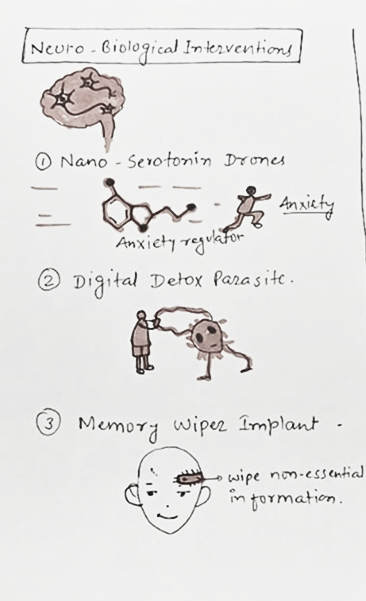 Neuro - Biological Interventions
① Nano - Serotonin Drones
Anxiety
Anxiety regulator
② Digital Detox Parasite.
③ Memory Wiper Implant -
wipe non-essential
information.